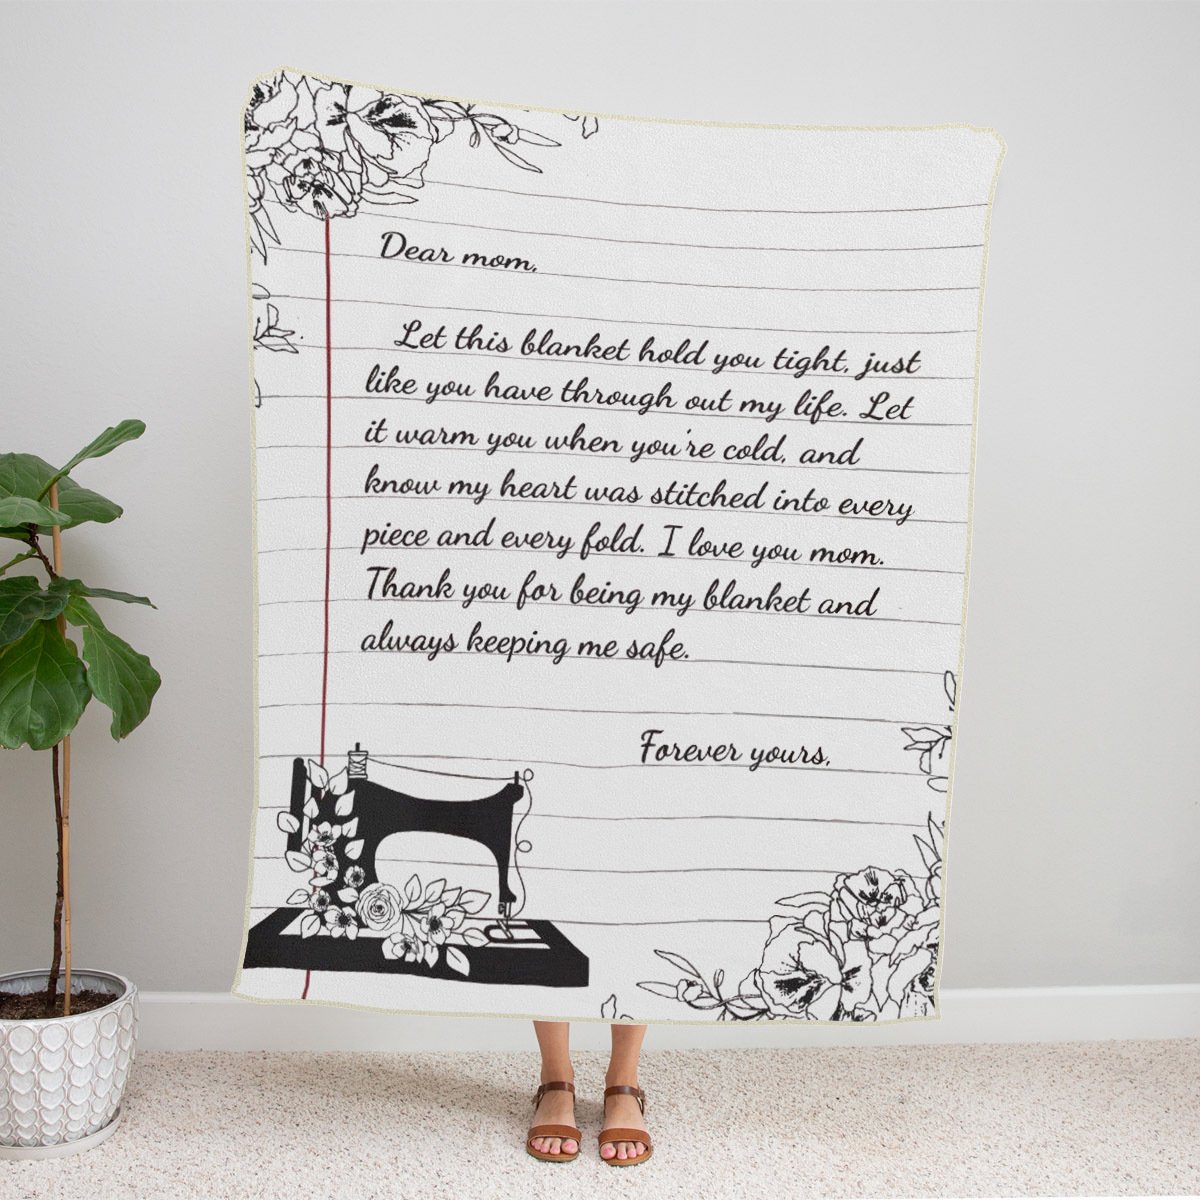 Dear mom,
Let this blanket hold you tight, just
like you have through out my life. Let
it warm you when you're cold, and
know my heart was stitched into every
piece and every fold. I love you mom.
Thank you for being my blanket and
always keeping me safe.
Forever yours,